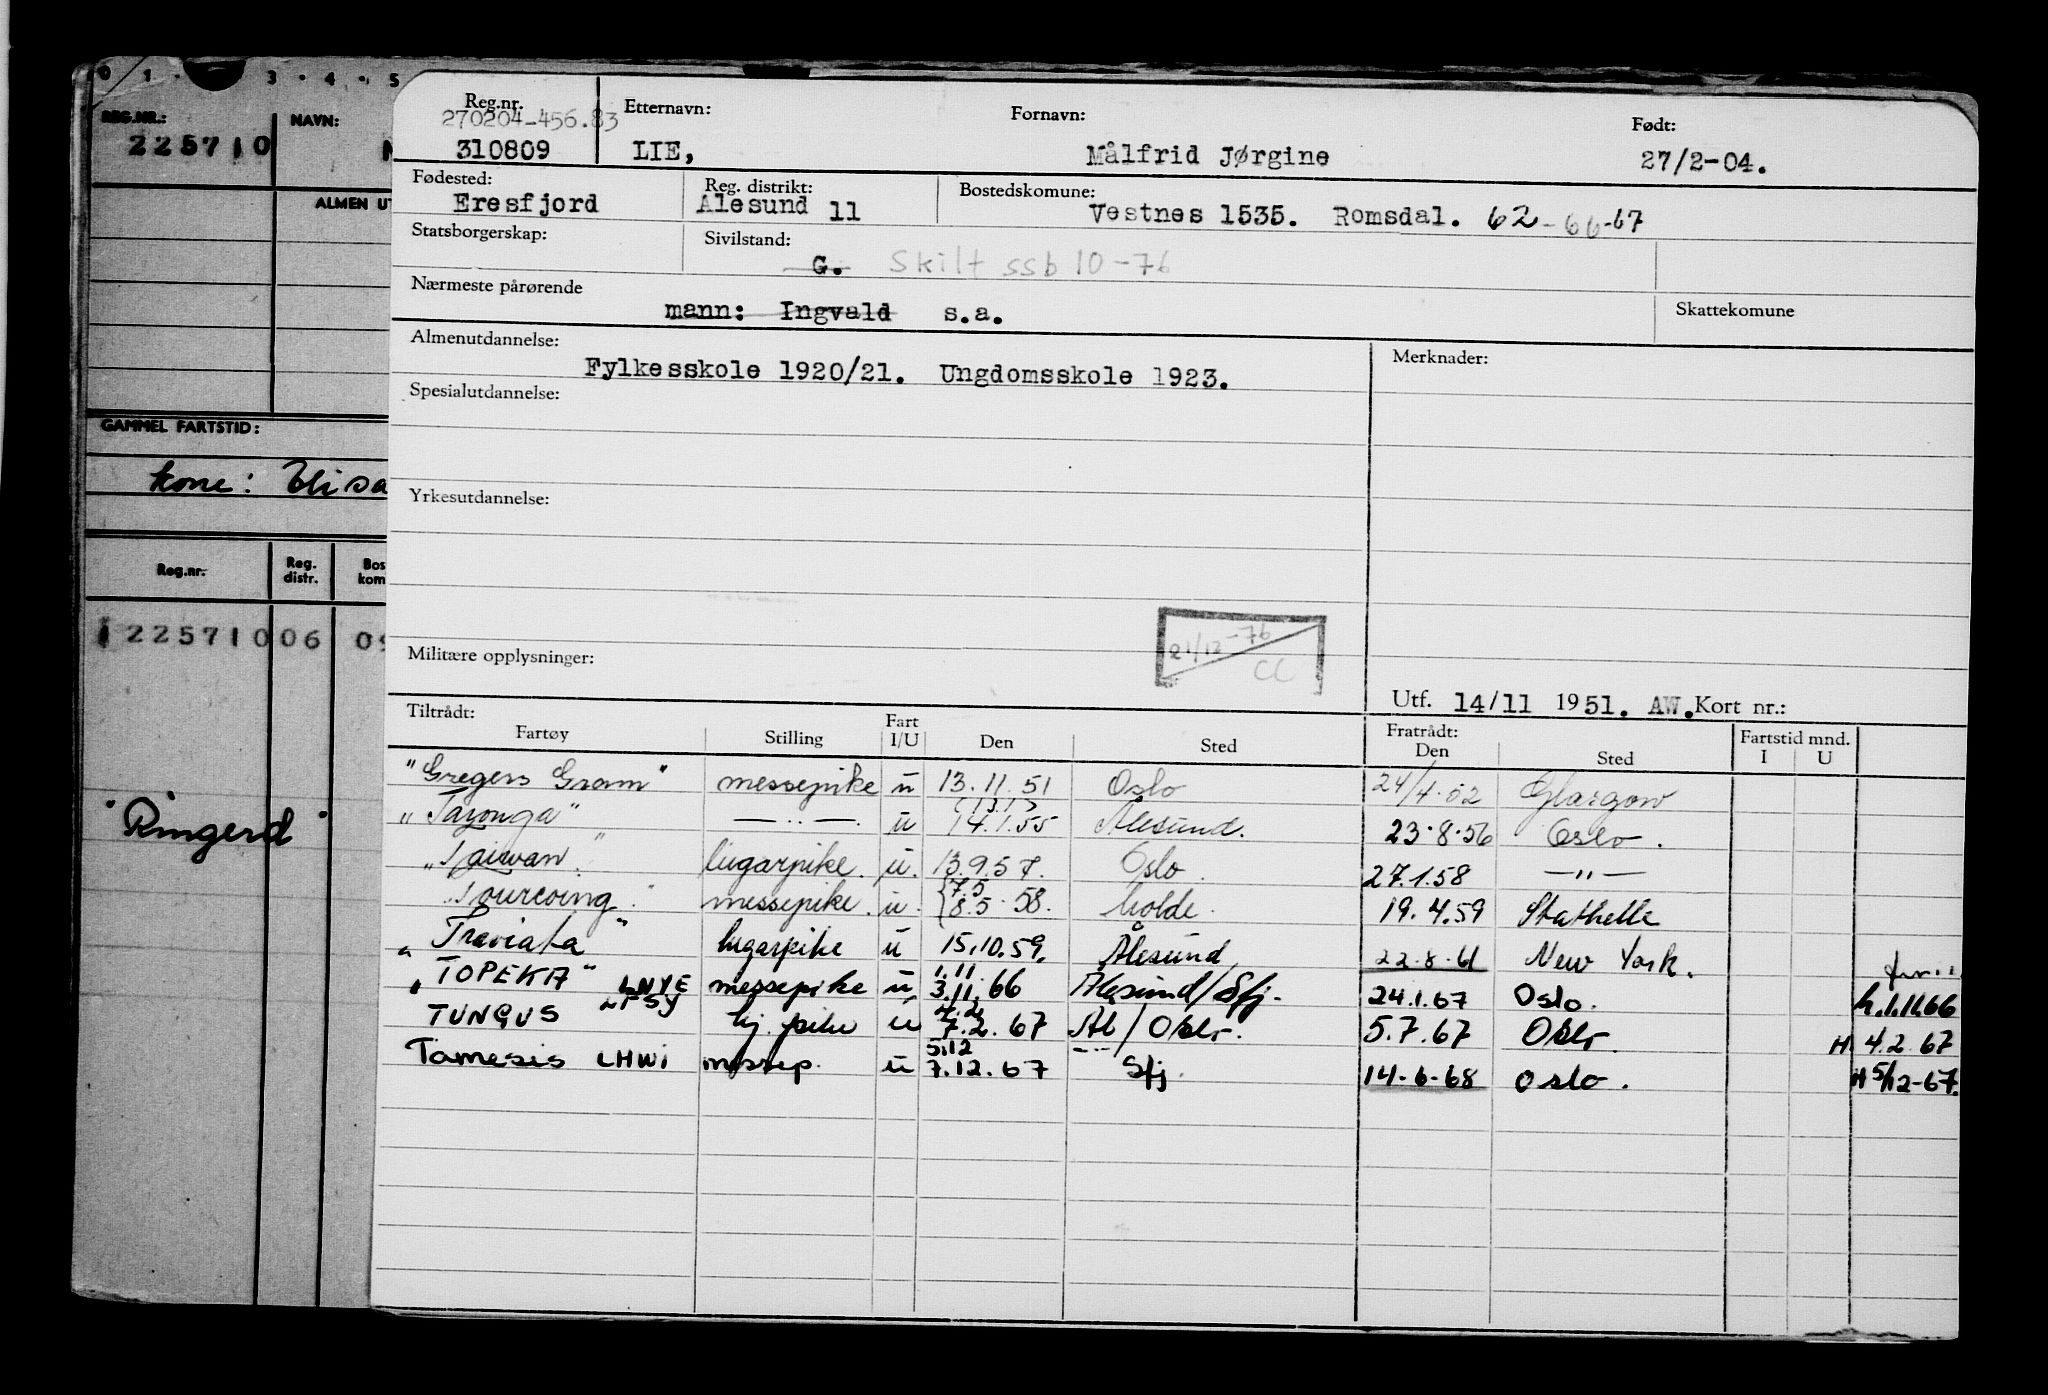 0 1 · 3 · 4 · 5
REG.NR.: NAVN:
225710
ALMEN UT
GAMMEL FARTSTID:
kone: Elisa
Reg.nr. Reg. distr. Bos kom
1 225710 06 09
"Ringerd"
Reg.nr. Etternavn: Fornavn: Født:
270204-456.83
310809 LIE, Målfrid Jørgine 27/2-04.
Fødested: Reg. distrikt: Bostedskomune:
Eresfjord Ålesund 11 Vestnes 1535. Romsdal. 62-66-67
Statsborgerskap: Sivilstand:
G. Skilt ssb 10-76
Nærmeste pårørende Skattekomune
mann: Ingvald s.a.
Almenutdannelse: Merknader:
Fylkesskole 1920/21. Ungdomsskole 1923.
Spesialutdannelse:
Yrkesutdannelse:
21/12-76
CC
Militære opplysninger:
Utf. 14/11 1951. AW. Kort nr.:
Tiltrådt: Fart Fratrådt: Fartstid mnd.
Fartøy Stilling I/U Den Sted Den Sted I U
"Gregers Gram" messepike u 13.11.51 Oslo 24/4.52 Glasgow
"Taronga" —..—. u (13/1) 14.1.55 Ålesund. 23.8.56 Oslo.
"Taiwan" lugarpike. u. 13.9.57. Oslo. 27.1.58 —"—
"Tourcoing" messepike. u. {7.5 8.5.58. Molde. 19.4.59 Stathelle
"Traviata" lugarpike u 15.10.59. Ålesund 22.8.61 New York.
"TOPEKA" LNVE messepike u 1.11 3.11.66 Ålesund/Sfj. 24.1.67 Oslo. h.1.11.66
TUNGUS LFSY lg. pike u 4.2 7.2.67 Ål/Oslo. 5.7.67 Oslo H. 4.2.67
Tamesis LHWI messep. u 5.12 7.12.67 —"— Sfj 14-6-68 Oslo. H 5/12-67.